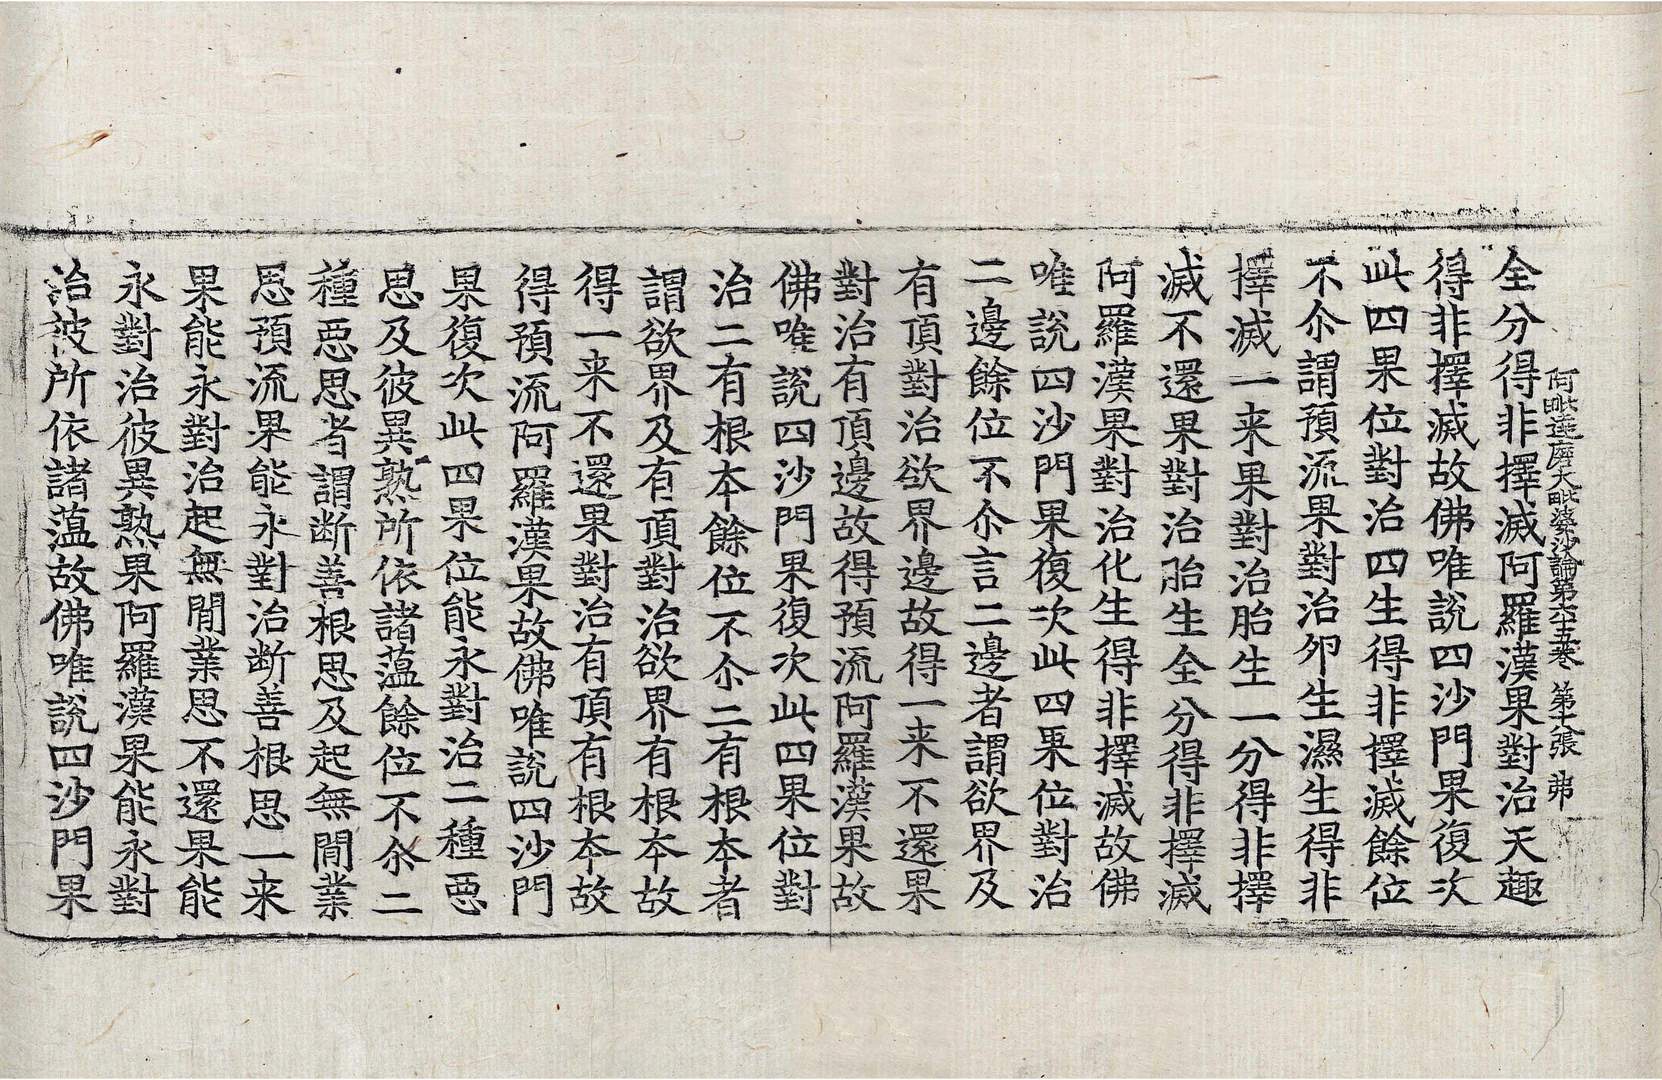 阿毗達磨大毗婆沙論第六十五卷 第十張 弗
全分得非擇滅阿羅漢果對治天趣
得非擇滅故佛唯說四沙門果復次
此四果位對治四生得非擇滅餘位
不尒謂預流果對治卵生濕生得非
擇滅一来果對治胎生一分得非擇
滅不還果對治胎生全分得非擇滅
阿羅漢果對治化生得非擇滅故佛
唯說四沙門果復次此四果位對治
二邊餘位不尒言二邊者謂欲界及
有頂對治欲界邊故得一来不還果
對治有頂邊故得預流阿羅漢果故
佛唯說四沙門果復次此四果位對
治二有根本餘位不尒二有根本者
謂欲界及有頂對治欲界有根本故
得一来不還果對治有頂有根本故
得預流阿羅漢果故佛唯說四沙門
果復次此四果位能永對治二種惡
思及彼異熟所依諸薀餘位不尒二
種惡思者謂断善根思及起無間業
思預流果能永對治断善根思一来
果能永對治起無間業思不還果能
永對治彼異熟果阿羅漢果能永對
治彼所依諸薀故佛唯說四沙門果